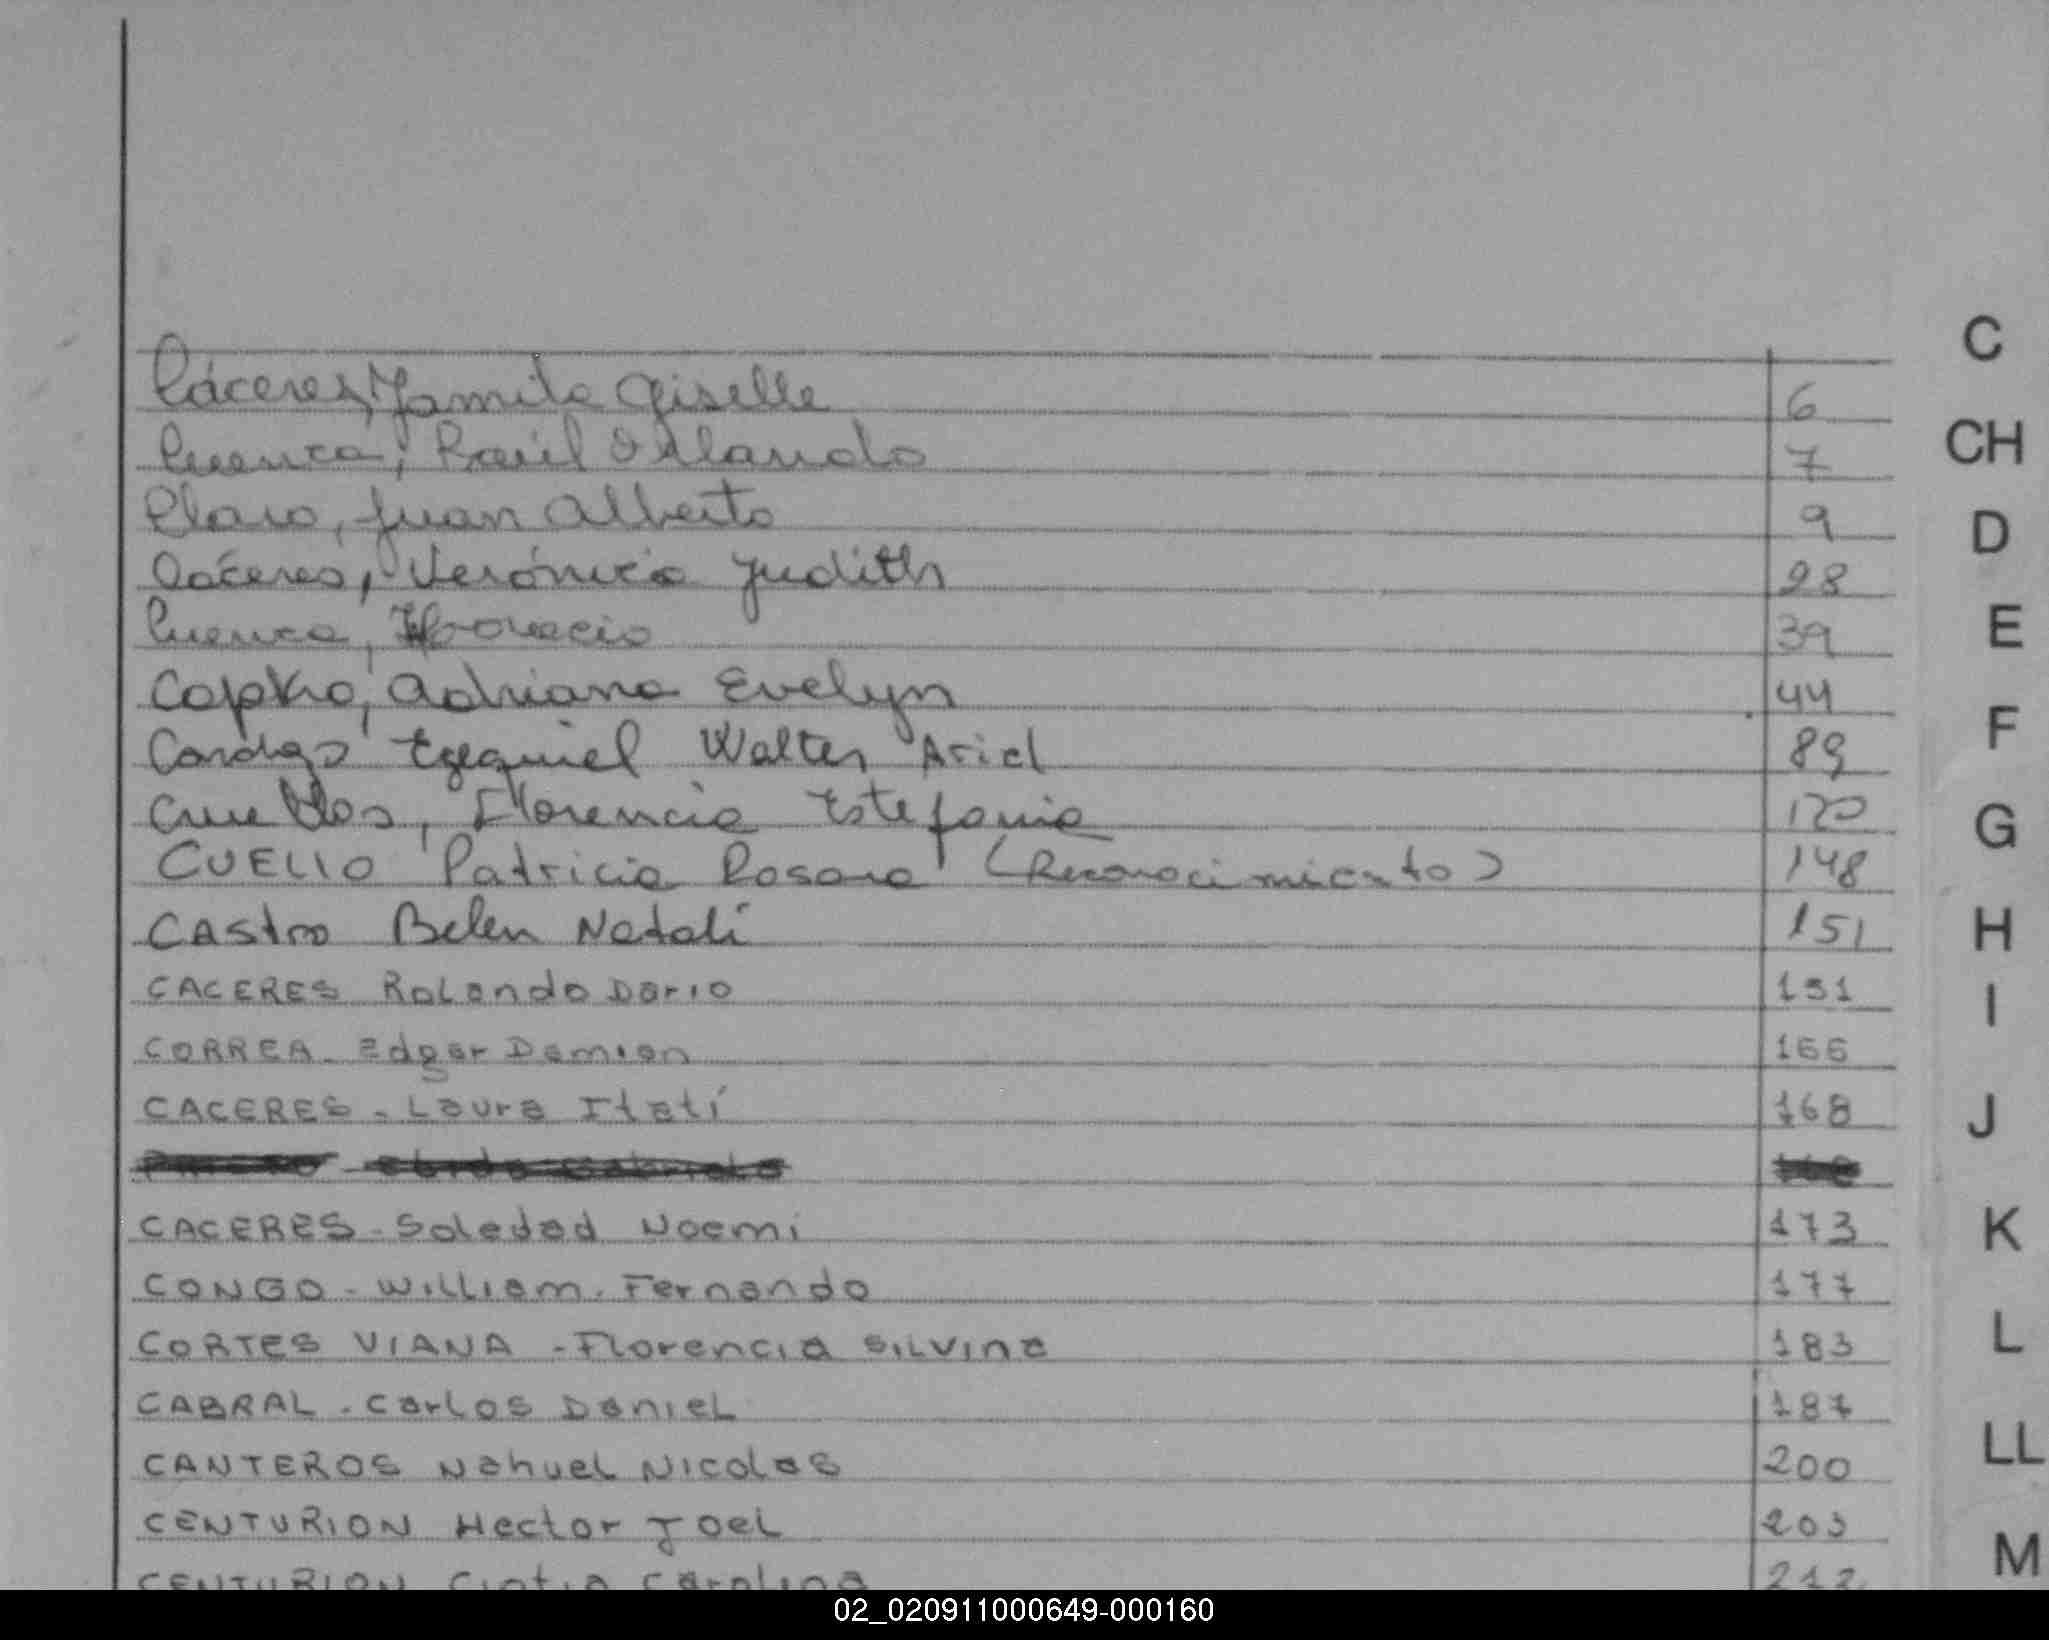 Cáceres, Yamila Giselle 6
Cuenca, Raúl Orlando 7
Claro, Juan Alberto 9
Cáceres, Verónica Judith 28
Cuenca, Horacio 39
Copko, Adriana Evelyn 44
Ezequiel Walter Ariel 89
Florencia Estefania 120
CUELLO Patricia Rosana (Reconocimiento) 148
CAstro Belen Natalí 151
CACERES RoLando Dario 151
CORREA - Edgar Damian 166
CACERES - Laura Itatí 168
CACERES - Soledad Noemi 173
CONGO - William - Fernando 177
CORTES VIANA - Florencia SILVina 183
CABRAL - CarLos DanieL 187
CANTEROS NahueL Nicolas 200
CENTURION Hector JoeL 203
CENTURION Cintia Carolina 212
C
CH
D
E
F
G
H
I
J
K
L
LL
M
02_020911000649-000160